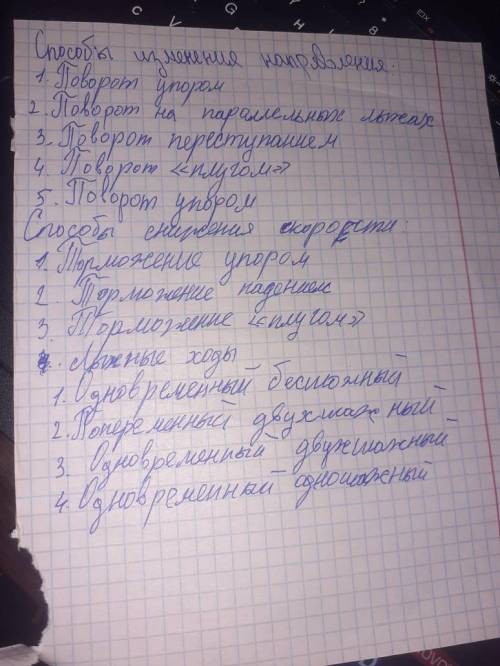 Способы изменения направления.
1. Поворот упором
2. Поворот на параллельных лыжах
3. Поворот переступанием
4. Поворот «плугом»
5. Поворот упором
Способы снижения скорости:
1. Торможение упором
2. Торможение падением
3. Торможение «плугом»
Лыжные ходы
1. Одновременный бесшажный
2. Попеременный двухшажный
3. Одновременный двухшажный
4. Одновременный одношажный